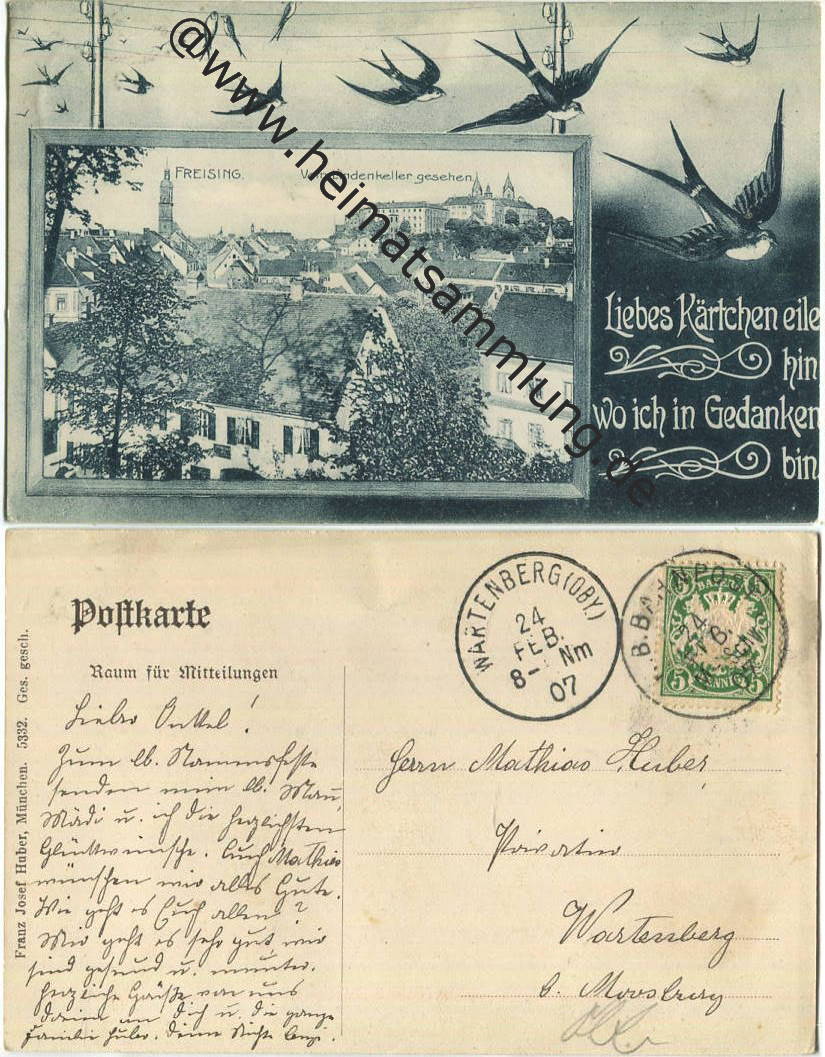 @www.heimatsammlung.de
FREISING.
gesehen.
Liebes Kärtchen eile
hin
wo ich in Gedanken
bin.
Postkarte
Raum für Mitteilungen
Franz Josef Huber, München. 5332. Ges. gesch.
WARTENBERG (OBY.)
24
FEB.
8- Nm
07
BAYERN
5 PFENNIG 5
Lieber Onkel!
Zum lb. Namensfeste
senden mein lb. Mann,
Mädi u. ich die herzlichsten
Glückwünsche. Auch Mathias
wünschen wir alles Gute.
Wie geht es Euch allen?
Mir geht es sehr gut, wir
sind gesund u. munter.
Herzliche Grüße von uns
an Dich u. die ganze
Familie Huber. Deine Nichte
Herrn Mathias Huber,
Privatier
Wartenberg
b. Moosburg